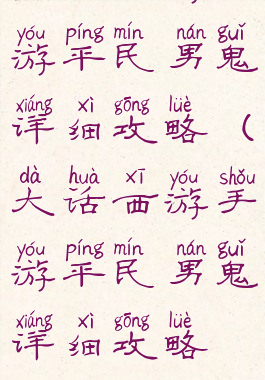 yóu píng mín nán guǐ
游平民 男鬼
xiáng xì gōng lüè
详细攻略（
dà huà xī yóu shǒu
大话西游手
yóu píng mín nán guǐ
游平民 男鬼
xiáng xì gōng lüè
详细攻略